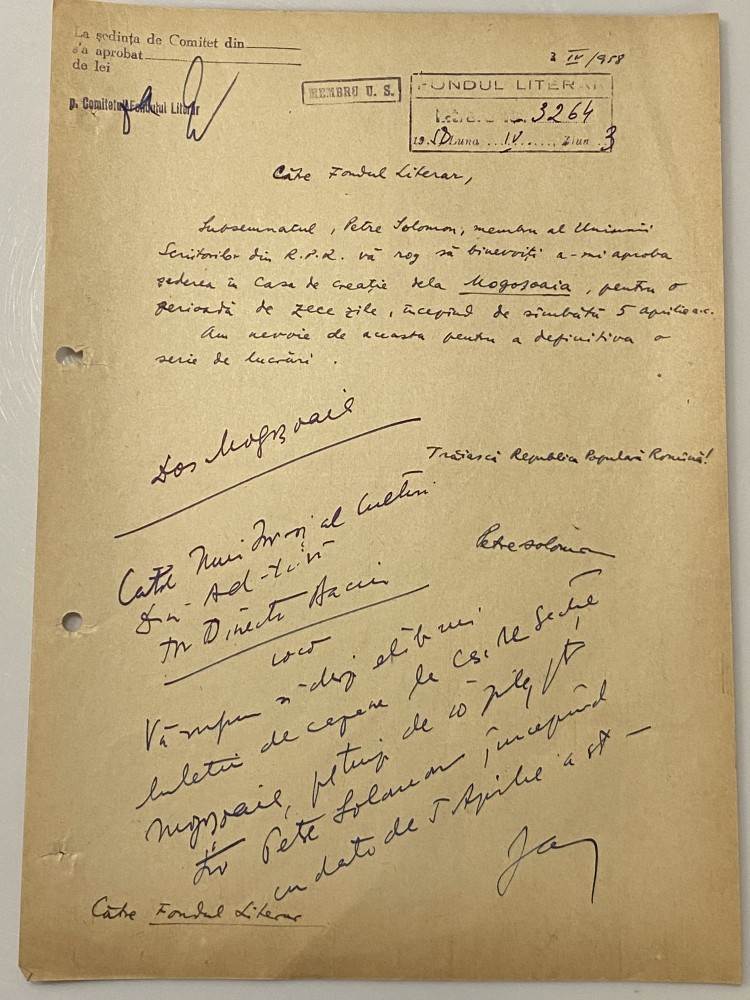 La ședința de Comitet din
s'a aprobat
de lei
p. Comitetul Fondului Literar
MEMBRU U. S.
3 IV/958
FONDUL LITERAR
3264
1958 Luna IV Ziua 3
Către Fondul Literar,
Subsemnatul, Petre Solomon, membru al Uniunii
Scriitorilor din R.P.R. vă rog să binevoiți a-mi aproba
șederea în Casa de creație dela Mogoșoaia, pentru o
perioadă de zece zile, începînd de sîmbătă 5 aprilie a.c.
Am nevoie de aceasta pentru a definitiva o
serie de lucrări.
Dos Mogoșoaie
Trăiască Republica Populară Română!
Petre Solomon
Către Min. Inv și al Culturii
Dir. Ad-tivă
Vă rugăm să
buletin de cazare la
Mogoșoaie, de 10 zile, pt
Petre Solomon, începînd
cu data de 5 Aprilie a
Către Fondul Literar